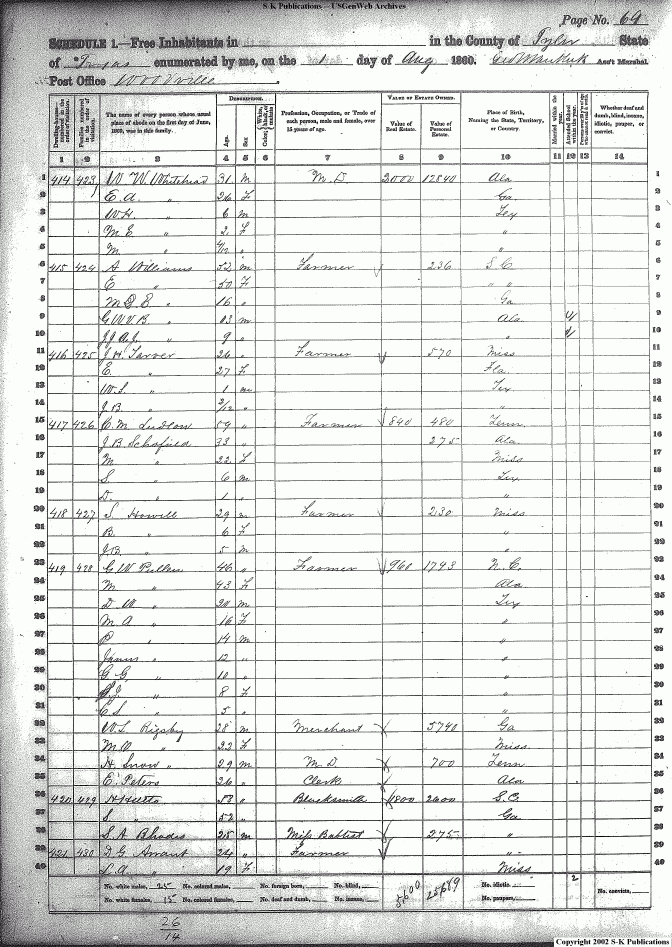 S-K Publications – USGenWeb Archives
Page No. 69
SCHEDULE 1.—Free Inhabitants in in the County of Tyler State
of Texas enumerated by me, on the 1 day of Aug 1860. Ass't Marshal.
Post Office Woodville
Dwelling-houses numbered in the order of visitation. Families numbered in the order of visitation. The name of every person whose usual place of abode on the first day of June, 1860, was in this family. DESCRIPTION. Age. Sex. Color, Profession, Occupation, or Trade of each person, male and female, over 15 years of age. VALUE OF ESTATE OWNED. Value of Real Estate. Value of Personal Estate. Place of Birth, Naming the State, Territory, or Country. Married within the year. Attended School within the year. Whether deaf and dumb, blind, insane, idiotic, pauper, or convict.
1 2 3 4 5 6 7 8 9 10 11 12 13 14
1 414 423 W W Whitehead 31 m M.D 2000 12840 Ala 1
2 E. A. " 26 F Ga 2
3 W H " 6 m Tex 3
4 M E " 2 F " 4
5 M " 4/12 " " 5
6 415 424 A Williams 52 m Farmer 236 S.C 6
7 E " 50 F " " 7
8 " 16 " Ga 8
9 G W V B " 13 m Ala 9
10 " 9 " " 10
11 416 425 J. H. Tarver 26 " Farmer 570 Miss 11
12 E. " 27 F Fla 12
13 W. S. " 1 m Tex 13
14 J. B. " 2/12 " " 14
15 417 426 C. M. Ludlow 59 " Farmer 840 480 Tenn 15
16 J. B Schofield 33 " 275 Ala 16
17 M " 22 F Miss 17
18 S. " 6 m Tex 18
19 D. " 1 " " 19
20 418 427 S Howell 29 m Farmer 230 Miss 20
21 B. " 6 F " 21
22 J.B. " 5 m " 22
23 419 428 C W Pullen 46 " Farmer 960 1743 N.C. 23
24 M " 43 F Ala 24
25 D W " 20 m Tex 25
26 M A " 16 F " 26
27 " 14 m " 27
28 James " 12 " " 28
29 G G " 10 " " 29
30 " 8 F " 30
31 C S " 5 " " 31
32 W. S Rigsby 28 m Merchant 5740 Ga 32
33 " 22 F Miss 33
34 H. Snow 29 m M.D 700 Tenn 34
35 E Peters 26 " Clerk Ala 35
36 420 429 58 " Blacksmith 1800 2600 S.C. 36
37 S " 52 " Ga 37
38 S. A Rhodes 25 m Miss Baptist 275 " 38
39 421 430 D. G Arrant 24 " Farmer " 39
40 " 19 F Miss 40
No. white males, 25 No. colored males, No. foreign born, No. blind, 5600 25689 No. idiotic 2
No. white females, 15 No. colored females, No. deaf and dumb, No. insane, No. paupers, No. convicts,
26
14
Copyright 2002 S-K Publications